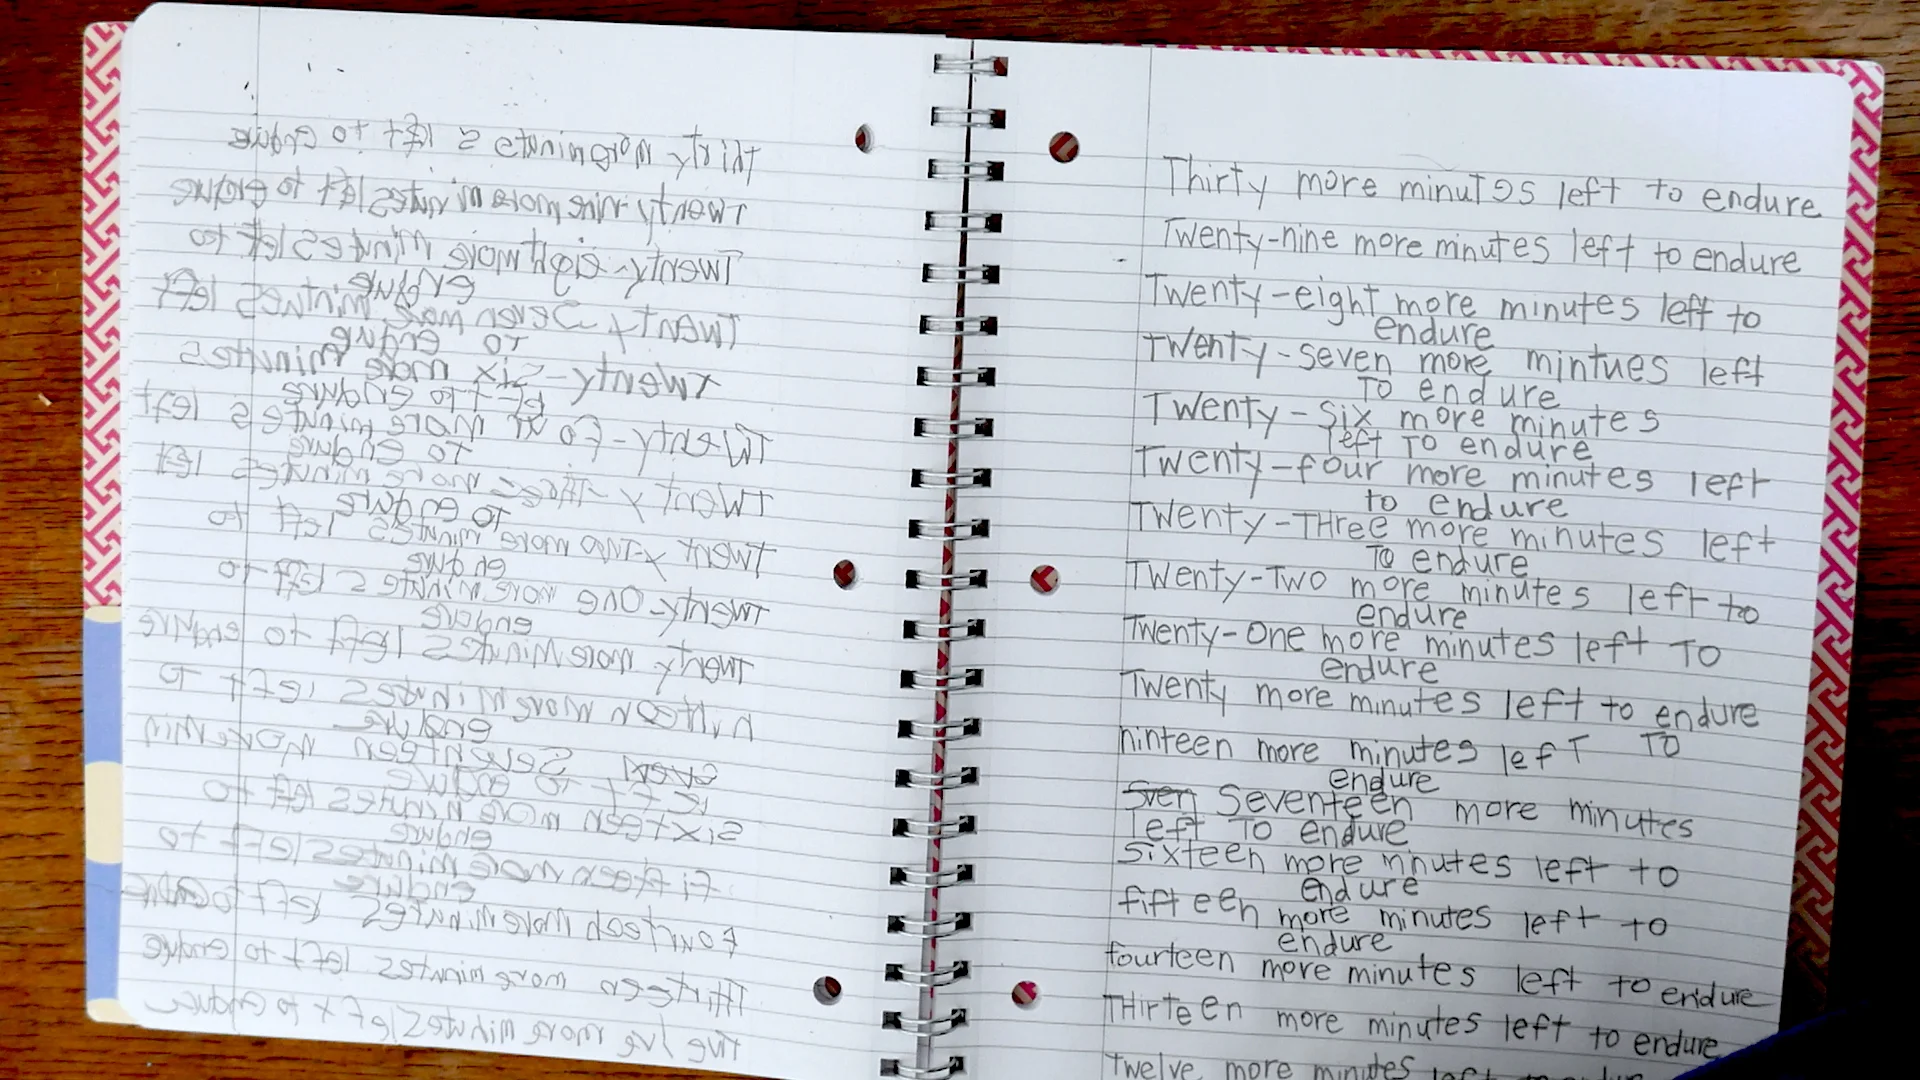 thirty more minutes left to endure
Twenty-nine more minutes left to endure
Twenty-eight more minutes left to
endure
Twenty-Seven more mintues left
To endure
Twenty-six more minutes
left to endure
Twenty-four more minutes left
To endure
Twenty-three more minutes left
To endure
Twenty-Two more minutes left to
endure
Twenty-One more minutes left to
endure
Twenty more minutes left to endure
ninteen more minutes left To
endure
Seventeen more min
left to endure
Sixteen more minutes left to
endure
fifteen more minutes left to
endure
fourteen more minutes left to endure
THirteen more minutes left to endure
more minutes left to endure
Thirty more minutes left to endure
Twenty-nine more minutes left to endure
Twenty-eight more minutes left to
endure
Twenty-seven more mintues left
To endure
Twenty-six more minutes
left To endure
Twenty-four more minutes left
to endure
Twenty-THree more minutes left
To endure
Twenty-Two more minutes left to
endure
Twenty-One more minutes left To
endure
Twenty more minutes left to endure
ninteen more minutes lefT To
endure
Sven Seventeen more minutes
left To endure
Sixteen more minutes left to
endure
fifteen more minutes left to
endure
fourteen more minutes left to endure
THirTeen more minutes left to endure
Twelve more minutes left to endure